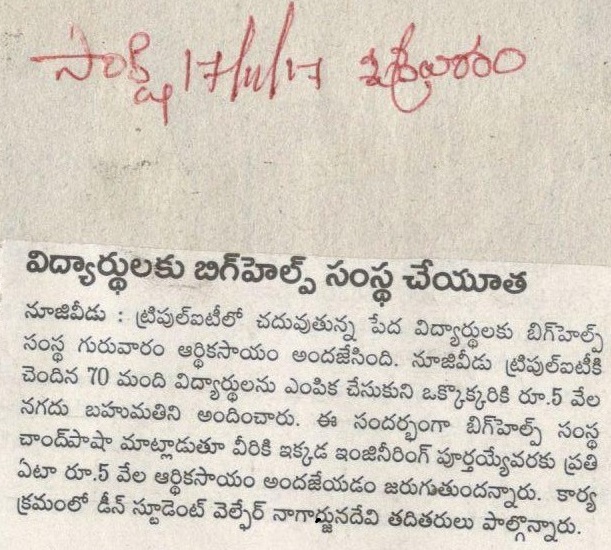 సాక్షి 17/11/17 శుక్రవారం
విద్యార్థులకు బిగ్‌హెల్ప్ సంస్థ చేయూత
నూజివీడు : ట్రిపుల్‌ఐటీలో చదువుతున్న పేద విద్యార్థులకు బిగ్‌హెల్ప్
సంస్థ గురువారం ఆర్థికసాయం అందజేసింది. నూజివీడు ట్రిపుల్‌ఐటీకి
చెందిన 70 మంది విద్యార్థులను ఎంపిక చేసుకుని ఒక్కొక్కరికి రూ.5 వేల
నగదు బహుమతిని అందించారు. ఈ సందర్భంగా బిగ్‌హెల్ప్ సంస్థ
చాంద్‌పాషా మాట్లాడుతూ వీరికి ఇక్కడ ఇంజినీరింగ్ పూర్తయ్యేవరకు ప్రతి
ఏటా రూ.5 వేల ఆర్థికసాయం అందజేయడం జరుగుతుందన్నారు. కార్య
క్రమంలో డీన్ స్టూడెంట్ వెల్ఫేర్ నాగార్జునదేవి తదితరులు పాల్గొన్నారు.